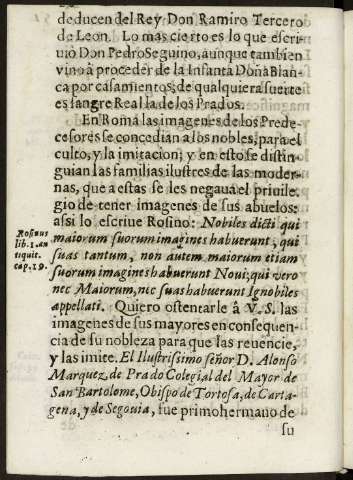 deducen del Rey Don Ramiro Tercero
de Leon. Lo mas cierto es lo que escri-
uió Don Pedro Seguino, aunque tambien
vino à proceder de la Infanta Doña Blan-
ca por casamientos; de qualquiera suerte
es sangre Real la de los Prados.
En Roma las imagenes de los Prede-
cesores se concedian a los nobles, para el
culto, y la imitacion; y en esto se distin-
guian las familias ilustres de las moder-
nas, que a estas se les negaua el priuile-
gio de tener imagenes de sus abuelos:
assi lo escriue Rosino: Nobiles dicti qui
maiorum suorum imagines habuerunt, qui
suas tantum, non autem maiorum etiam
suorum imagines habuerunt Noui; qui vero
nec Maiorum, nec suas habuerunt Ignobiles
appellati. Quiero ostentarle â V. S. las
imagenes de sus mayores en consequen-
cia de su nobleza para que las reuencie,
y las imite. El Ilustrissimo señor D. Alonso
Marquez de Prado Colegial del Mayor de
San Bartolome, Obispo de Tortosa, de Carta-
gena, y de Segouia, fue primo hermano de
su
Rosinus
lib. 1. an
tiquit.
cap. 19.